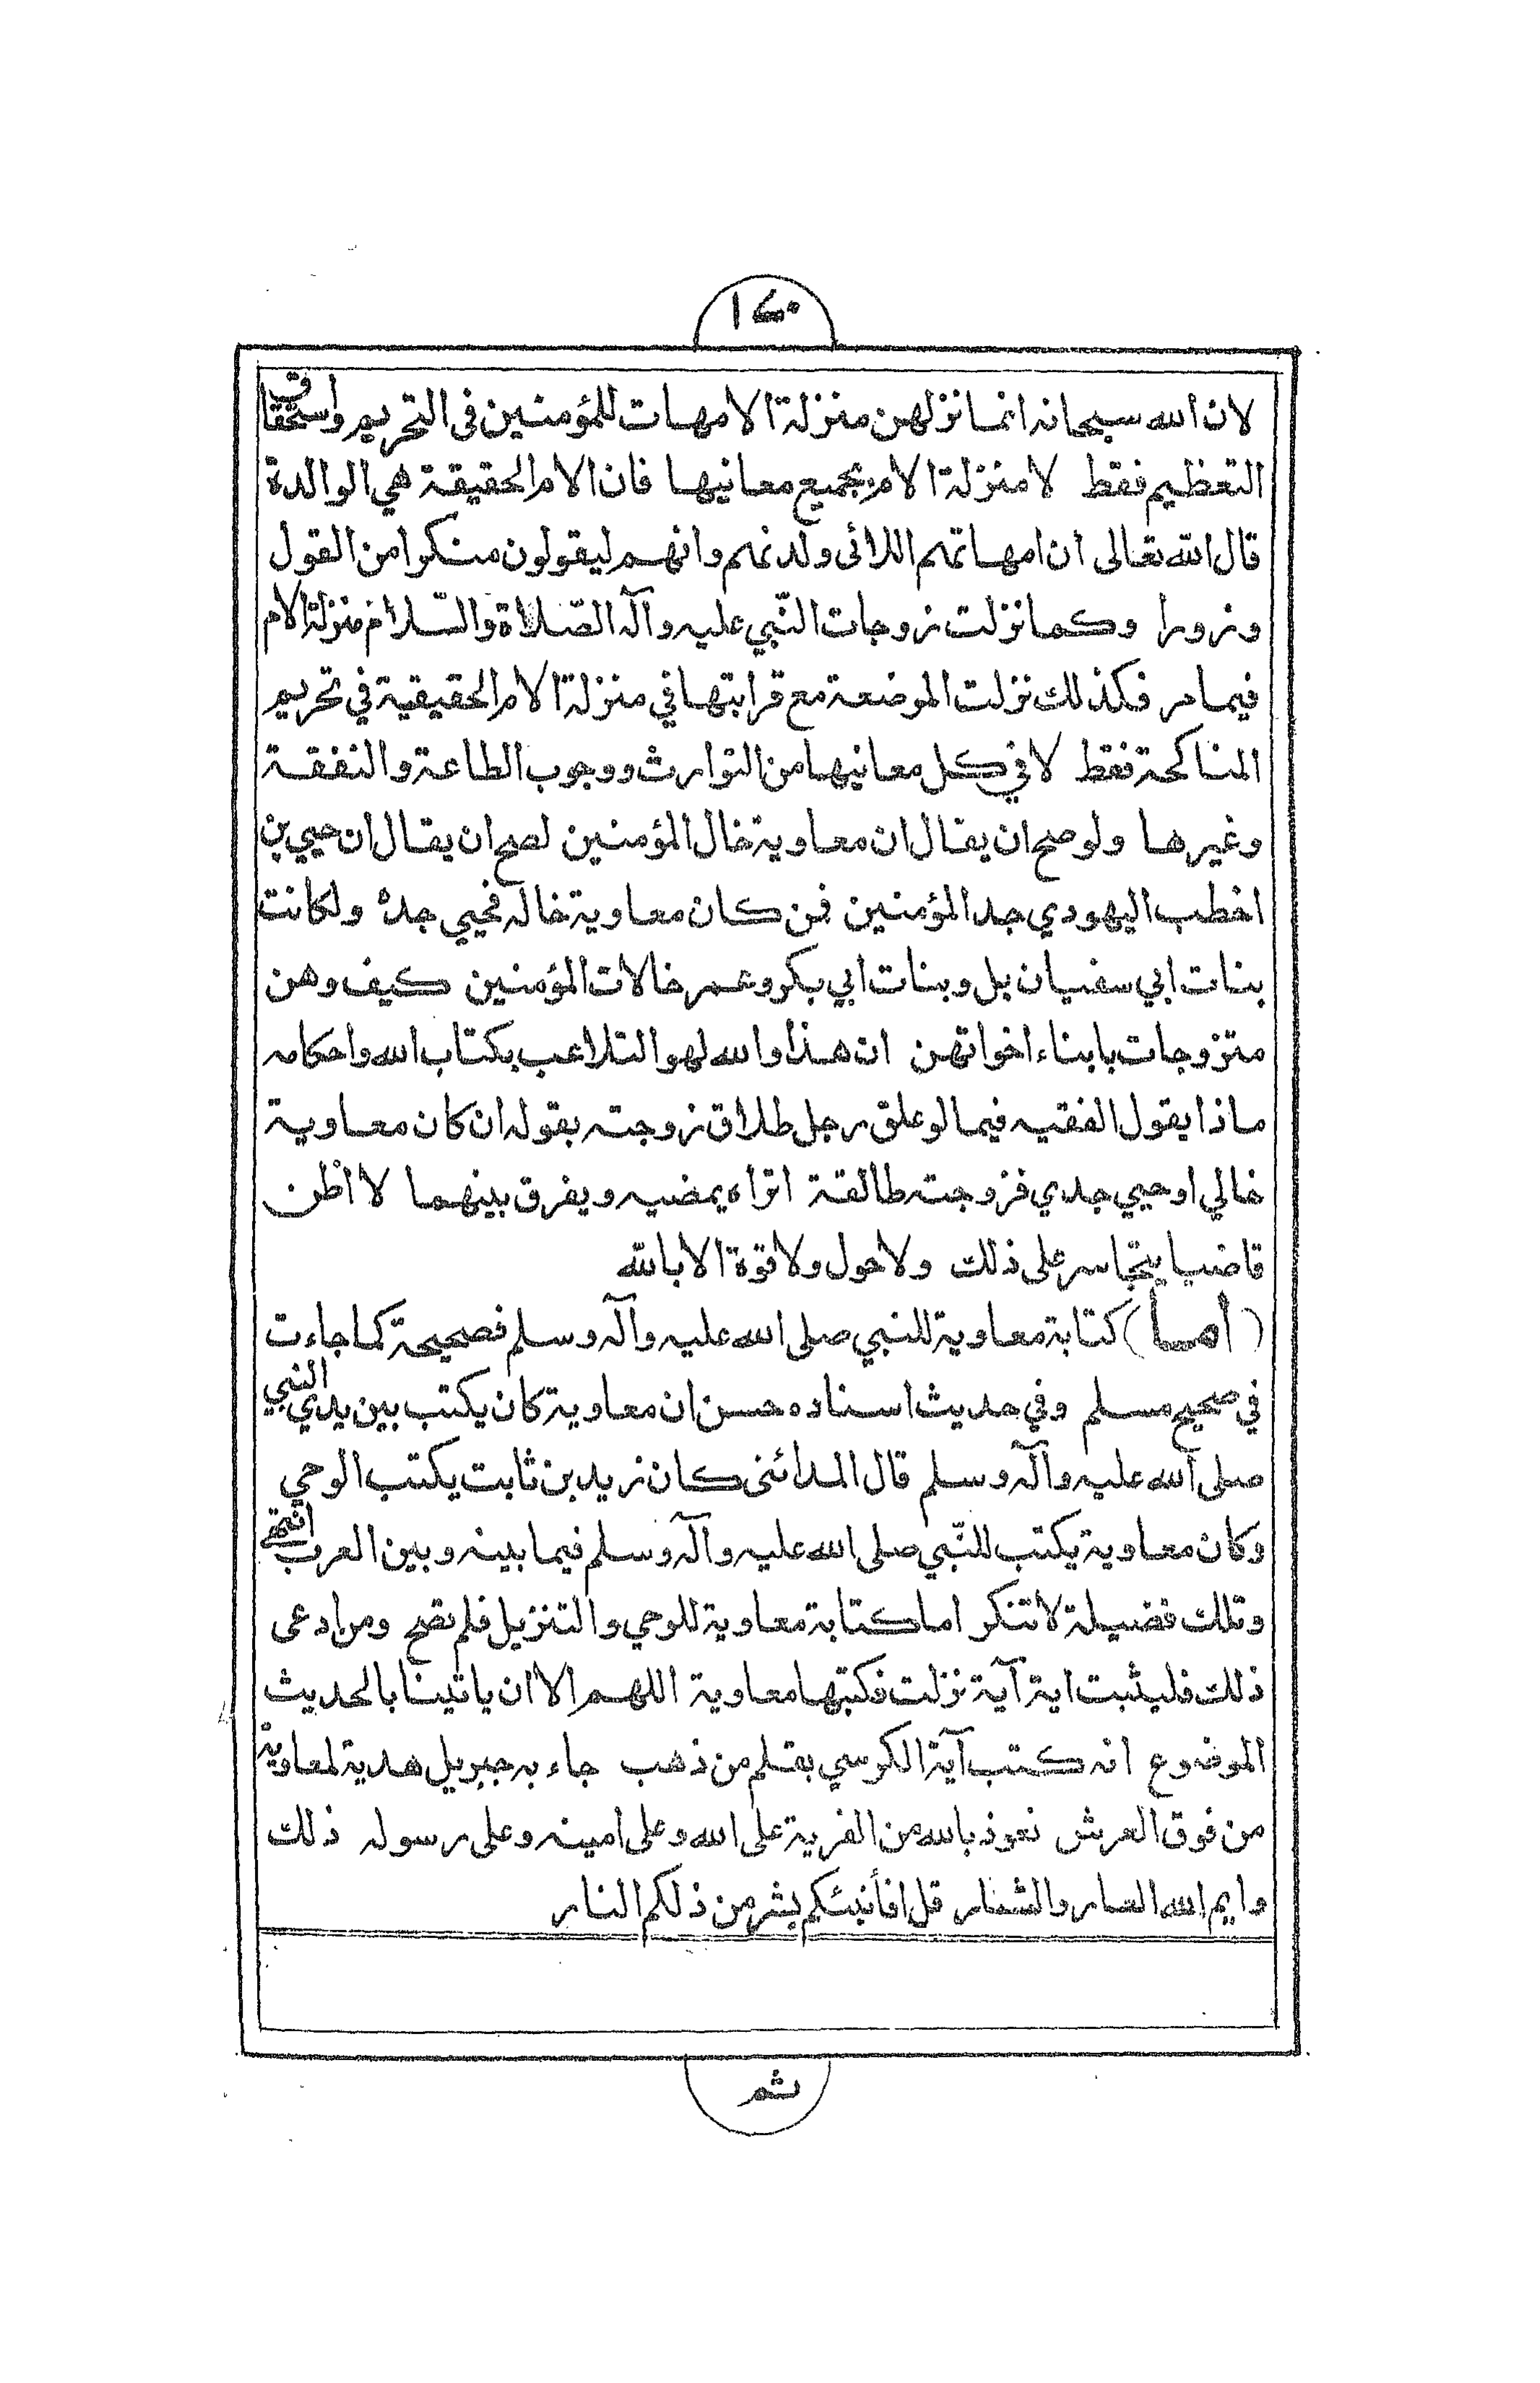 ١٤٠
لان الله سبحانه انما نزلهن منزلة الامهات للمؤمنين فى التحريم واستحقاق
التعظيم فقط لا منزلة الام بجميع معانيها فان الام الحقيقة هي الوالدة
قال الله تعالى ان امهاتهم اللائى ولدنهم وانهم ليقولون منكرا من القول
وزورا وكما نزلت زوجات النّبي عليه وآله الصّلاة والسّلام منزلة الام
فيما مر فكذلك نزلت المرضعة مع قرابتها في منزلة الام الحقيقية في تحريم
المناكحة فقط لا في كل معانيها من التوارث ووجوب الطاعة والنفقة
وغيرها ولو صح ان يقال ان معاوية خال المؤمنين لصح ان يقال ان حيي بن
اخطب اليهودي جد المؤمنين فمن كان معاوية خاله فحيي جده ولكانت
بنات ابي سفيان بل وبنات ابي بكر وعمر خالات المؤمنين كيف وهن
متزوجات بابناء اخواتهن ان هذا والله لهو التلاعب بكتاب الله واحكامه
ماذا يقول الفقيه فيما لو علق رجل طلاق زوجته بقوله ان كان معاوية
خالي او حيي جدي فزوجته طالقة اتراه يمضيه ويفرق بينهما لا اظن
قاضيا يتجاسر على ذلك ولا حول ولا قوة الا بالله
(أما) كتابة معاوية للنبي صلى الله عليه وآله وسلم فصحيحة كما جاءت
في صحيح مسلم وفي حديث اسناده حسن ان معاوية كان يكتب بين يدي النبي
صلى الله عليه وآله وسلم قال المدائنى كان زيد بن ثابت يكتب الوحي
وكان معاوية يكتب للنّبي صلى الله عليه وآله وسلم فيما بينه وبين العرب انتهى
وتلك فضيلة لا تنكر اما كتابة معاوية للوحي والتنزيل فلم تصح ومن ادعى
ذلك فليثبت اية آية نزلت فكتبها معاوية اللهم الا ان ياتينا بالحديث
الموضوع انه كتب آية الكرسي بقلم من ذهب جاء به جبريل هدية لمعاوية
من فوق العرش نعوذ بالله من الفرية على الله وعلى امينه وعلى رسوله ذلك
وايم الله العار والشنار قل افأنبئكم بشر من ذلكم النار
ثم